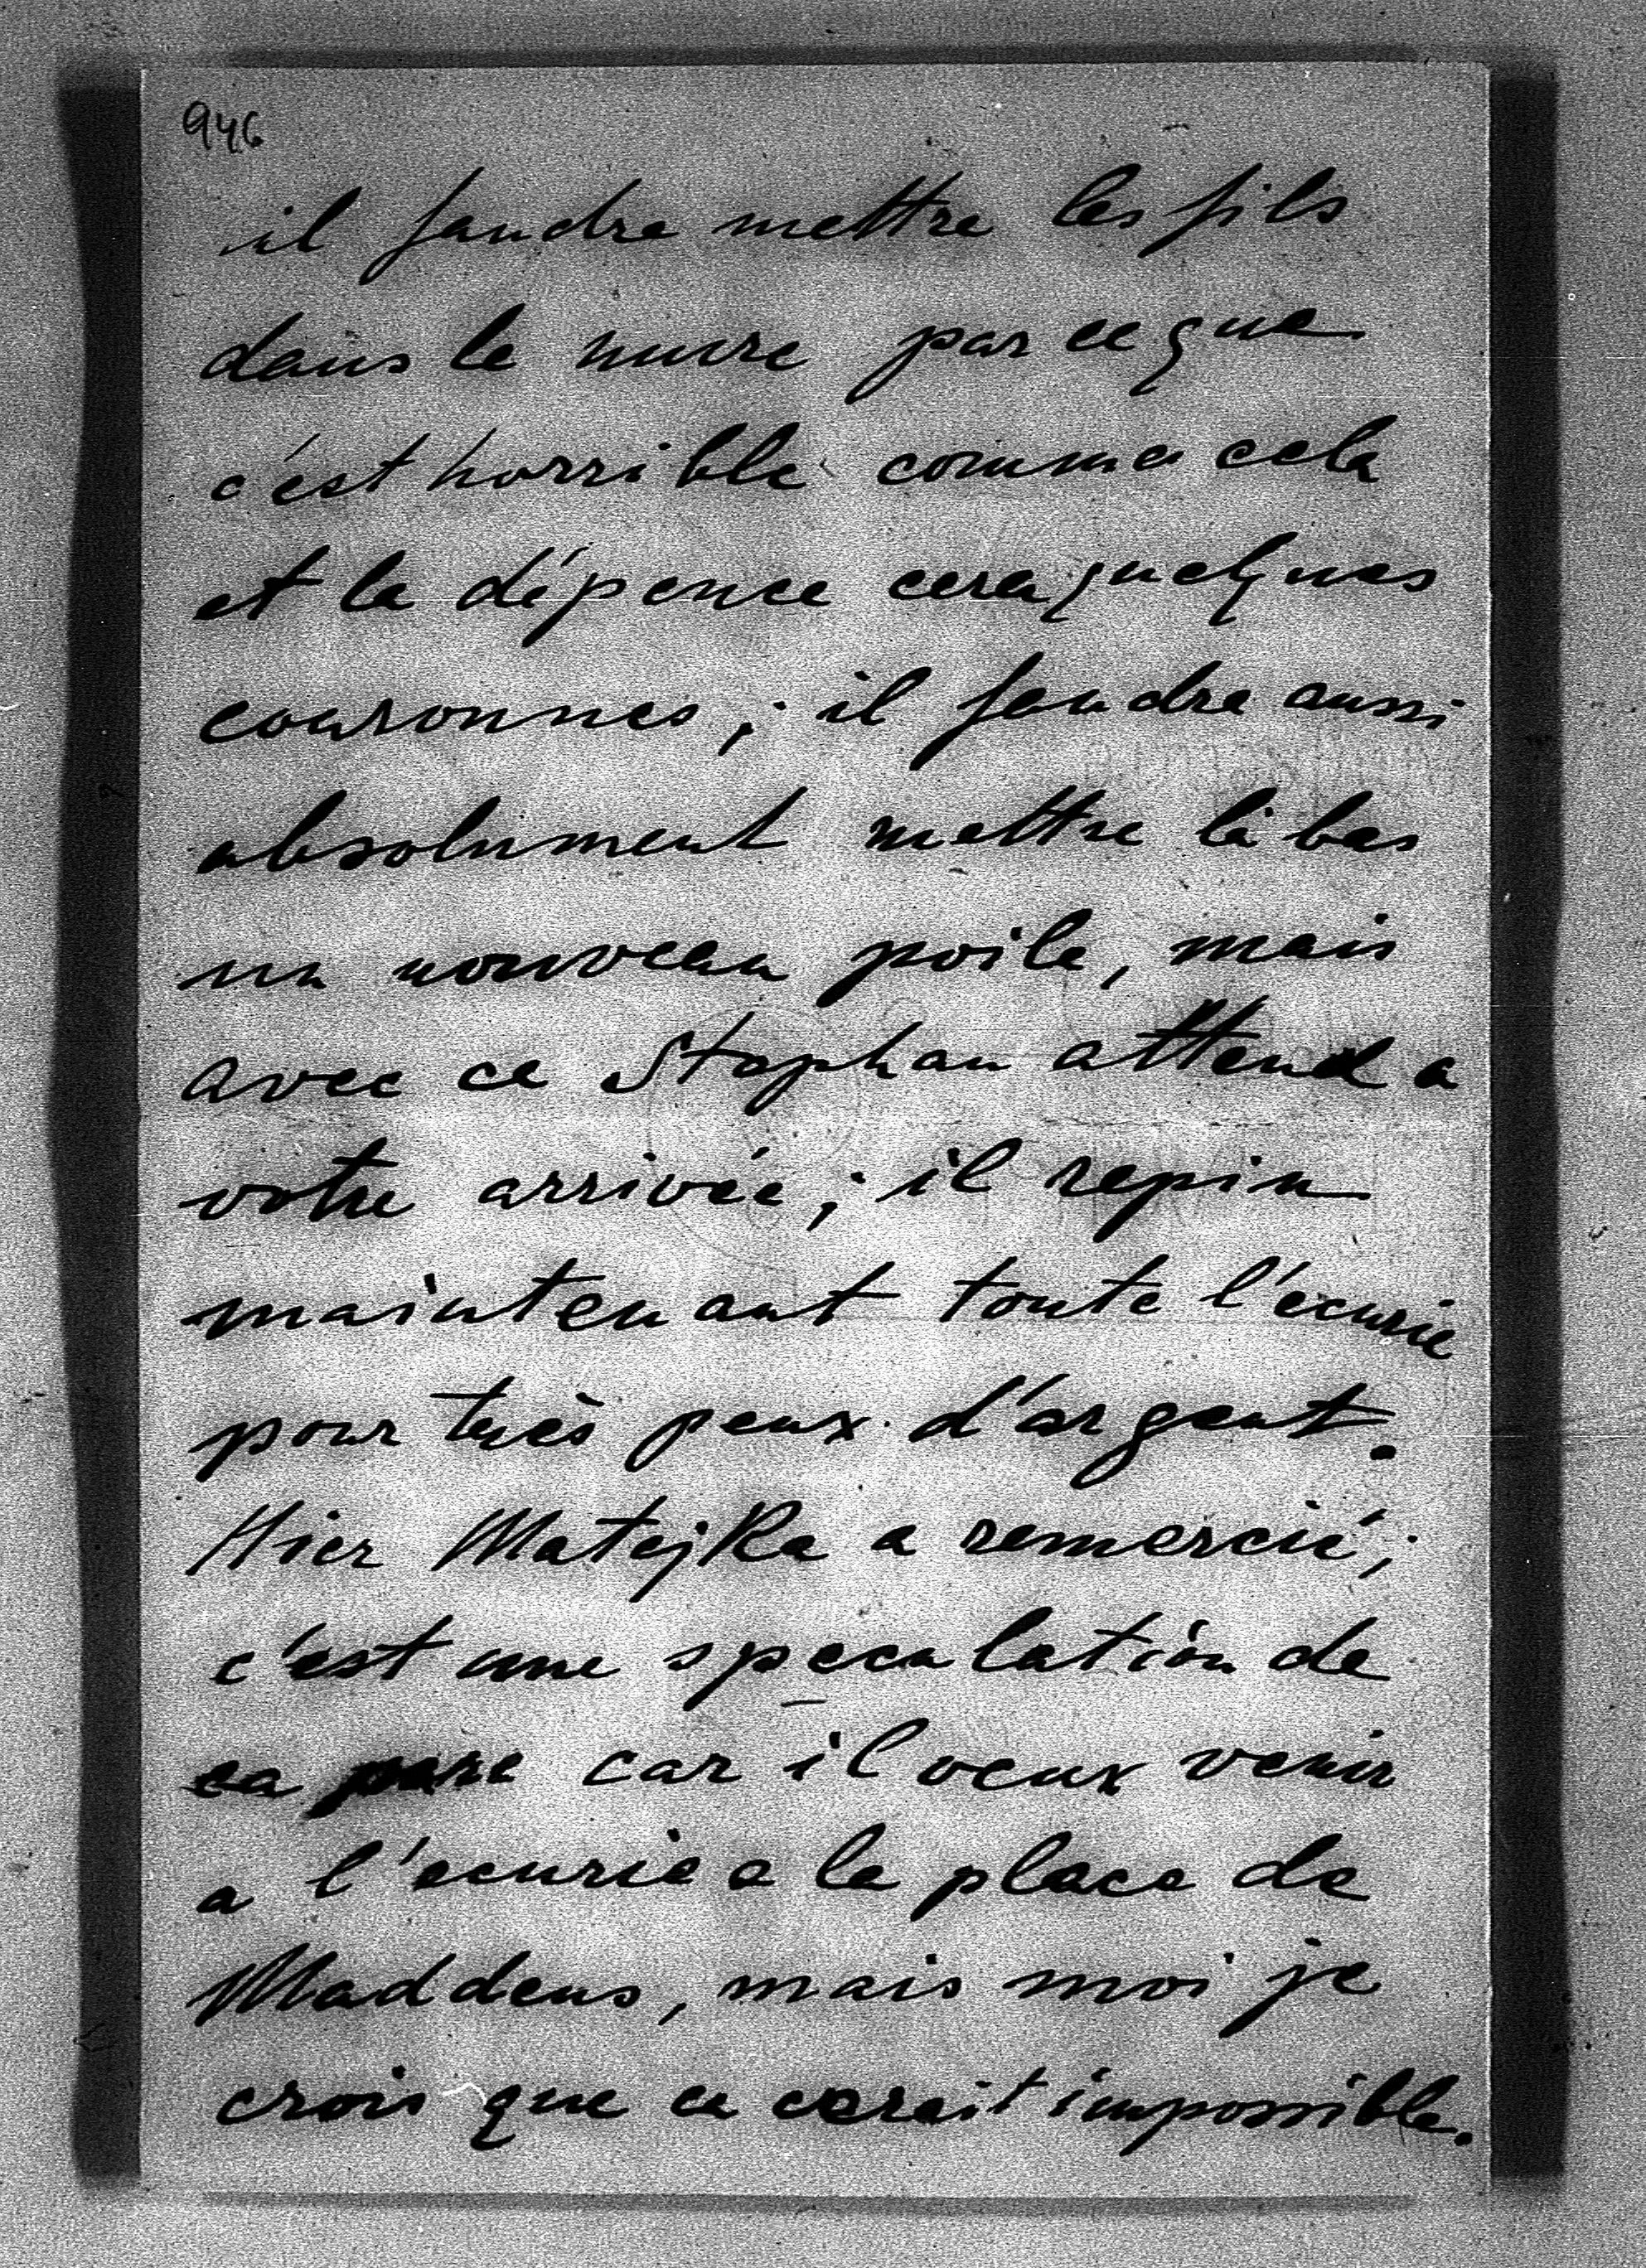 946
il faudra mettre les fils
dans le mure parceque
c'est horrible comme cela
et la dépence cera quelques
couronnes; il faudra aussi
absolument mettre là bas
un nouveau poile, mais
avec ce Stephan attend a
votre arrivée; il repin
maintenant toute l'écurie
pour très peux d'argent.
Hier Matejka a remercié;
c'est une speculation de
ca part car il veux venir
a l'ecurie a la place de
Maddens, mais moi je
crois que ca cerait impossible.